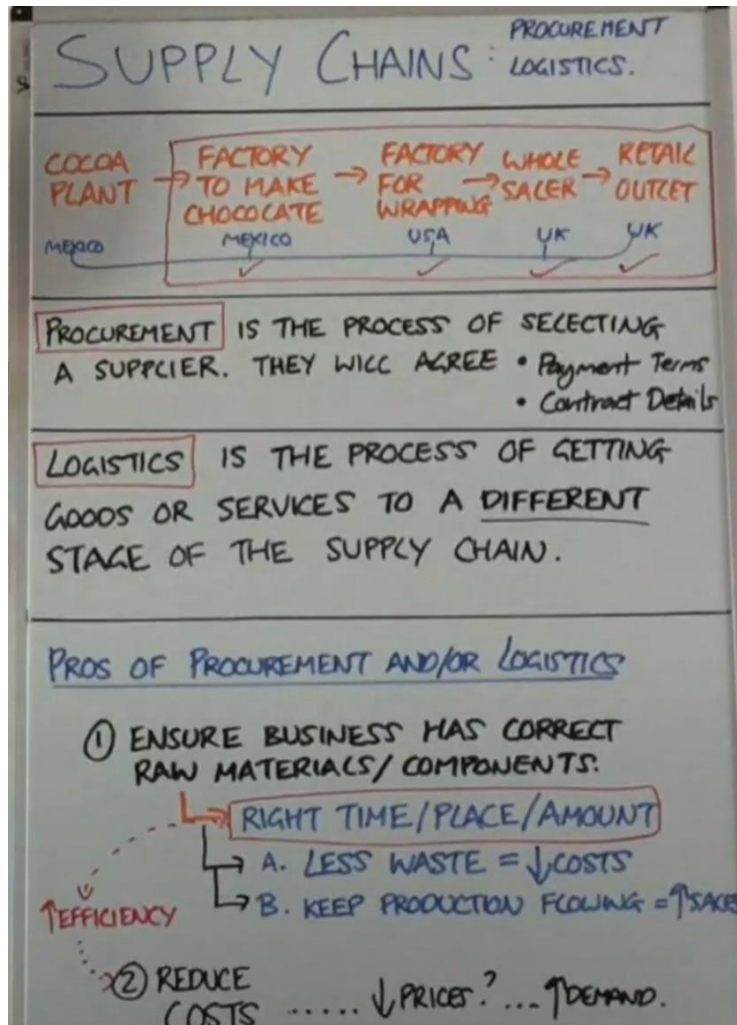 SUPPLY CHAINS: PROCUREMENT
LOGISTICS.
COCOA PLANT → FACTORY TO MAKE CHOCOLATE → FACTORY FOR WRAPPING → WHOLE SALER → RETAIL OUTLET
MEXICO MEXICO USA UK UK
PROCUREMENT IS THE PROCESS OF SELECTING
A SUPPLIER. THEY WILL AGREE • Payment Terms
• Contract Details
LOGISTICS IS THE PROCESS OF GETTING
GOODS OR SERVICES TO A DIFFERENT
STAGE OF THE SUPPLY CHAIN.
PROS OF PROCUREMENT AND/OR LOGISTICS
① ENSURE BUSINESS HAS CORRECT
RAW MATERIALS/COMPONENTS.
RIGHT TIME/PLACE/AMOUNT
A. LESS WASTE = ↓COSTS
↑EFFICIENCY
B. KEEP PRODUCTION FLOWING = ↑SALES
② REDUCE
COSTS ...... ↓PRICES? ... ↑DEMAND.